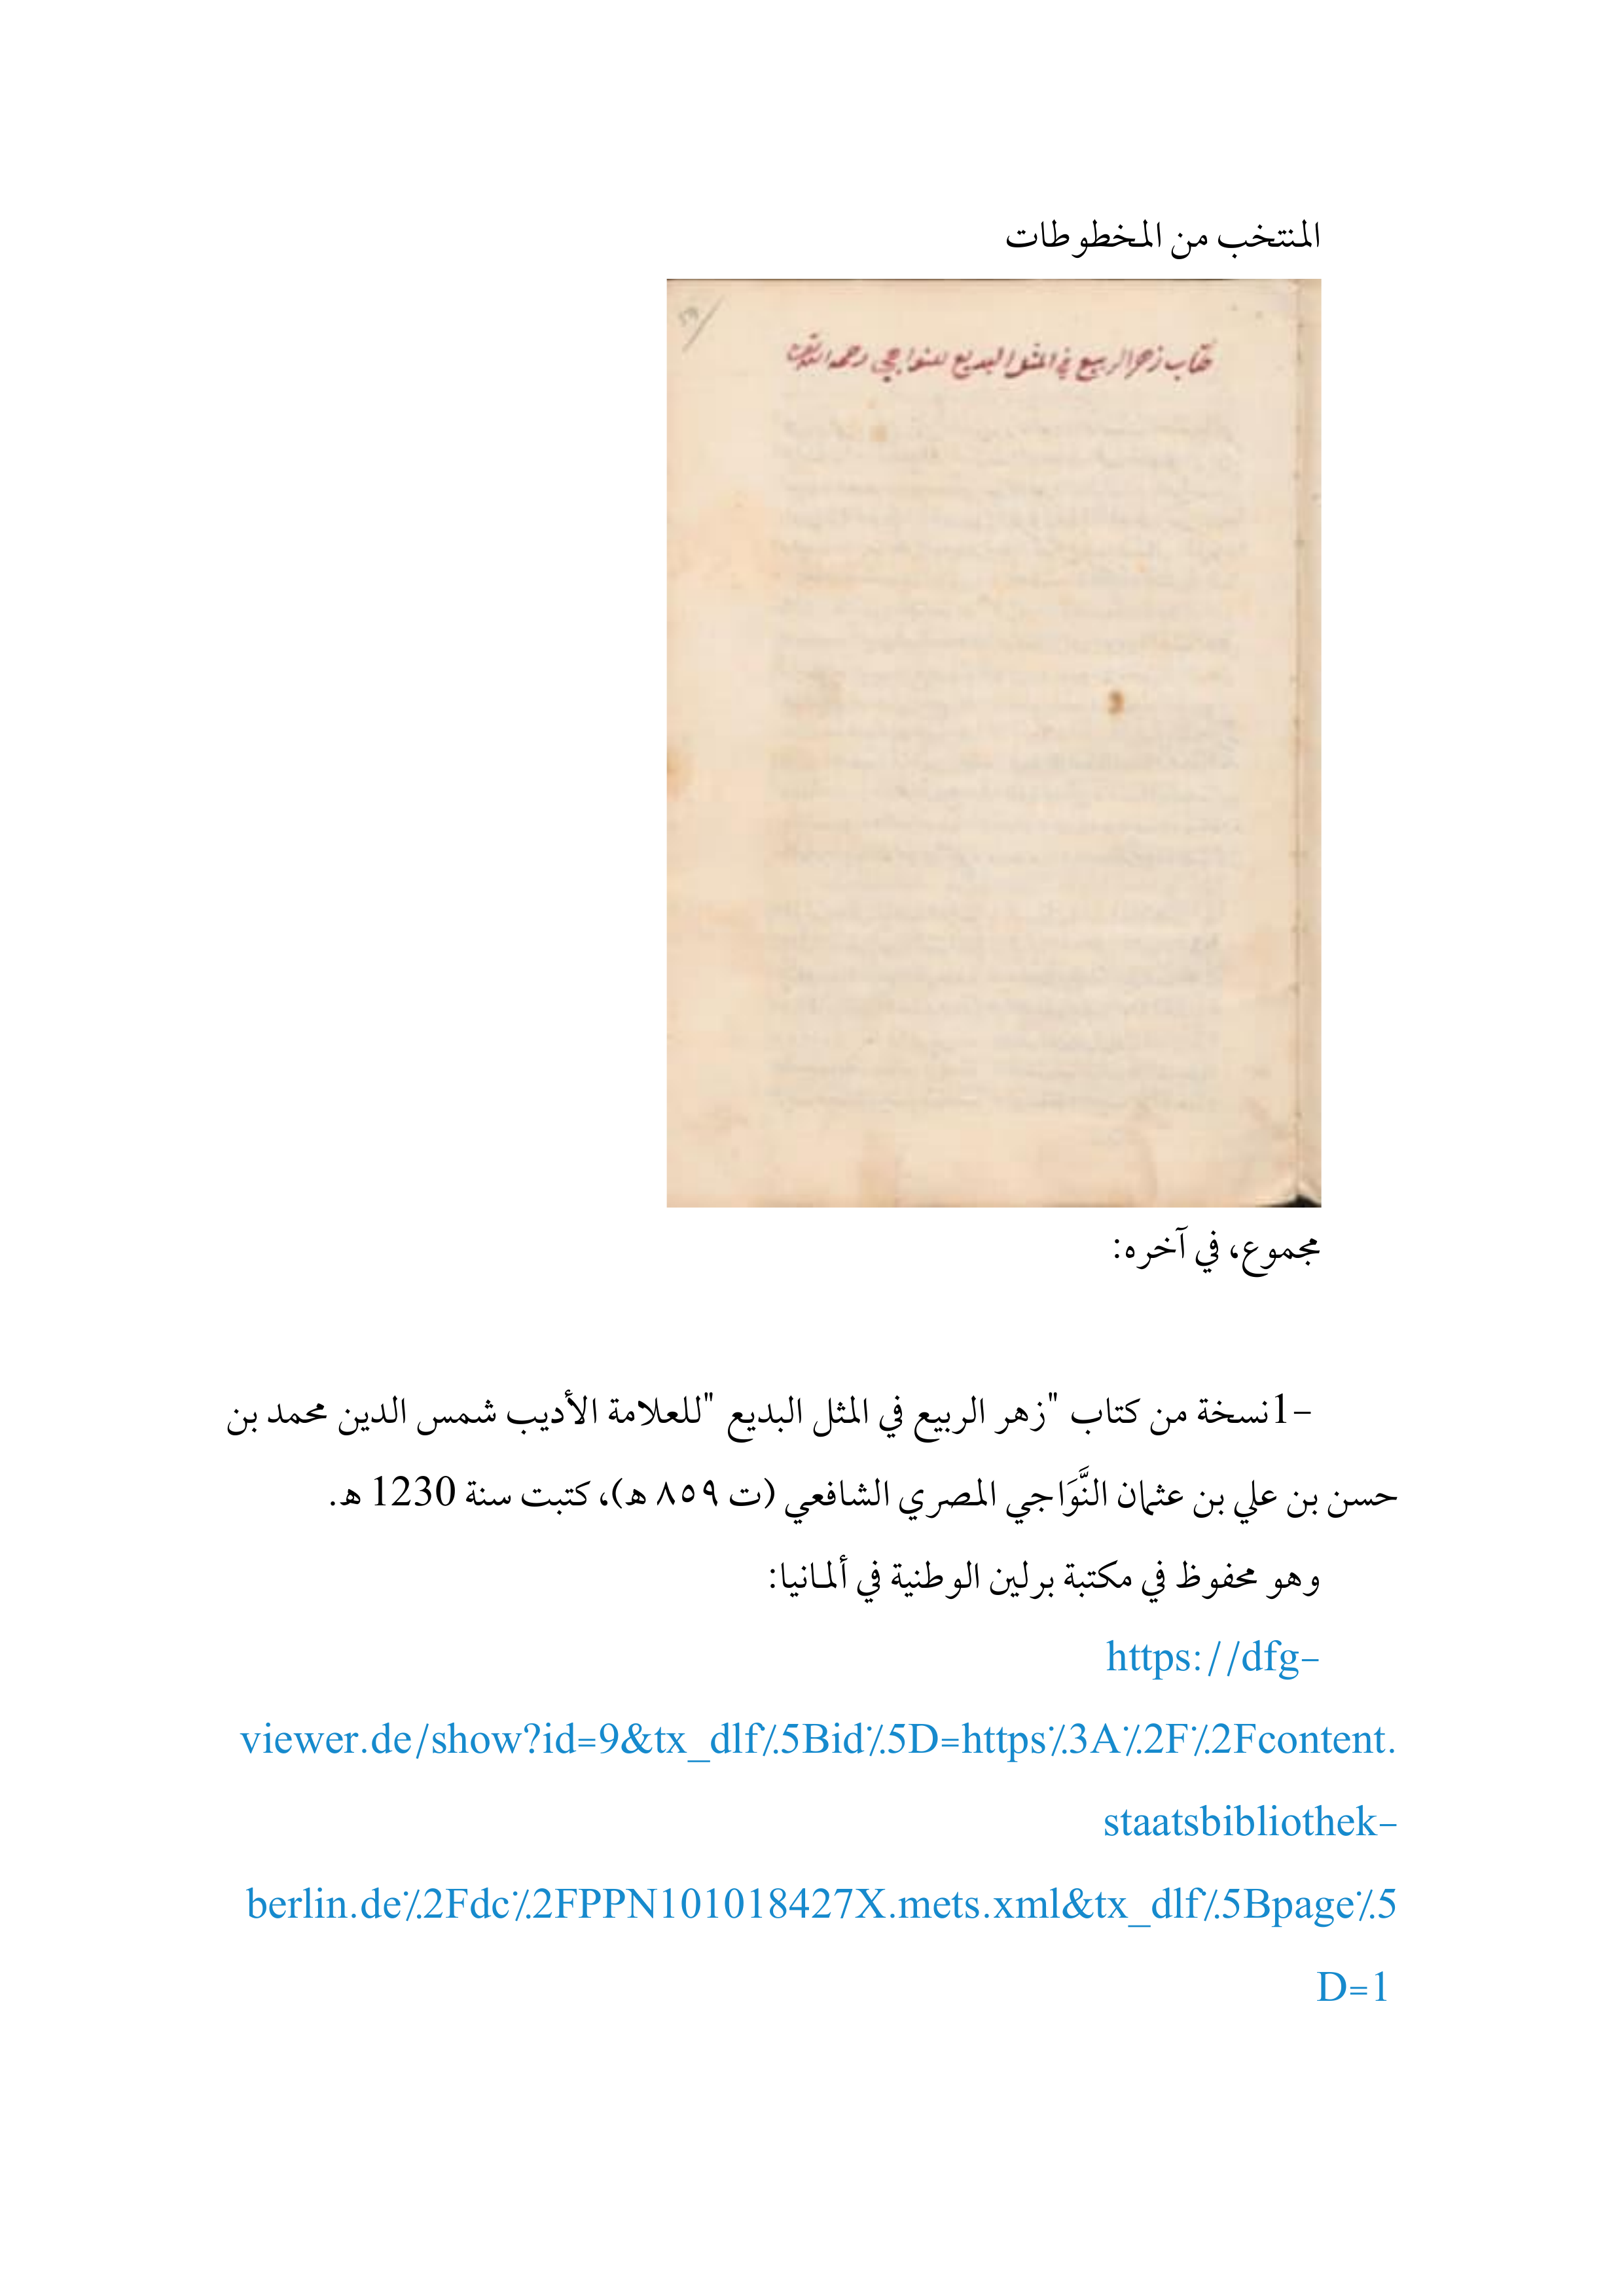 المنتخب من المخطوطات
كتاب زهر الربيع في المثل البديع للنواجي رحمه الله
مجموع، في آخره:
1-نسخة من كتاب "زهر الربيع في المثل البديع "للعلامة الأديب شمس الدين محمد بن
حسن بن علي بن عثمان النَّوَاجي المصري الشافعي (ت ٨٥٩ هـ)، كتبت سنة 1230 هـ.
وهو محفوظ في مكتبة برلين الوطنية في ألمانيا:
https://dfg-
viewer.de/show?id=9&tx_dlf٪5Bid٪5D=https٪3A٪2F٪2Fcontent.
staatsbibliothek-
berlin.de٪2Fdc٪2FPPN101018427X.mets.xml&tx_dlf٪5Bpage٪5
D=1